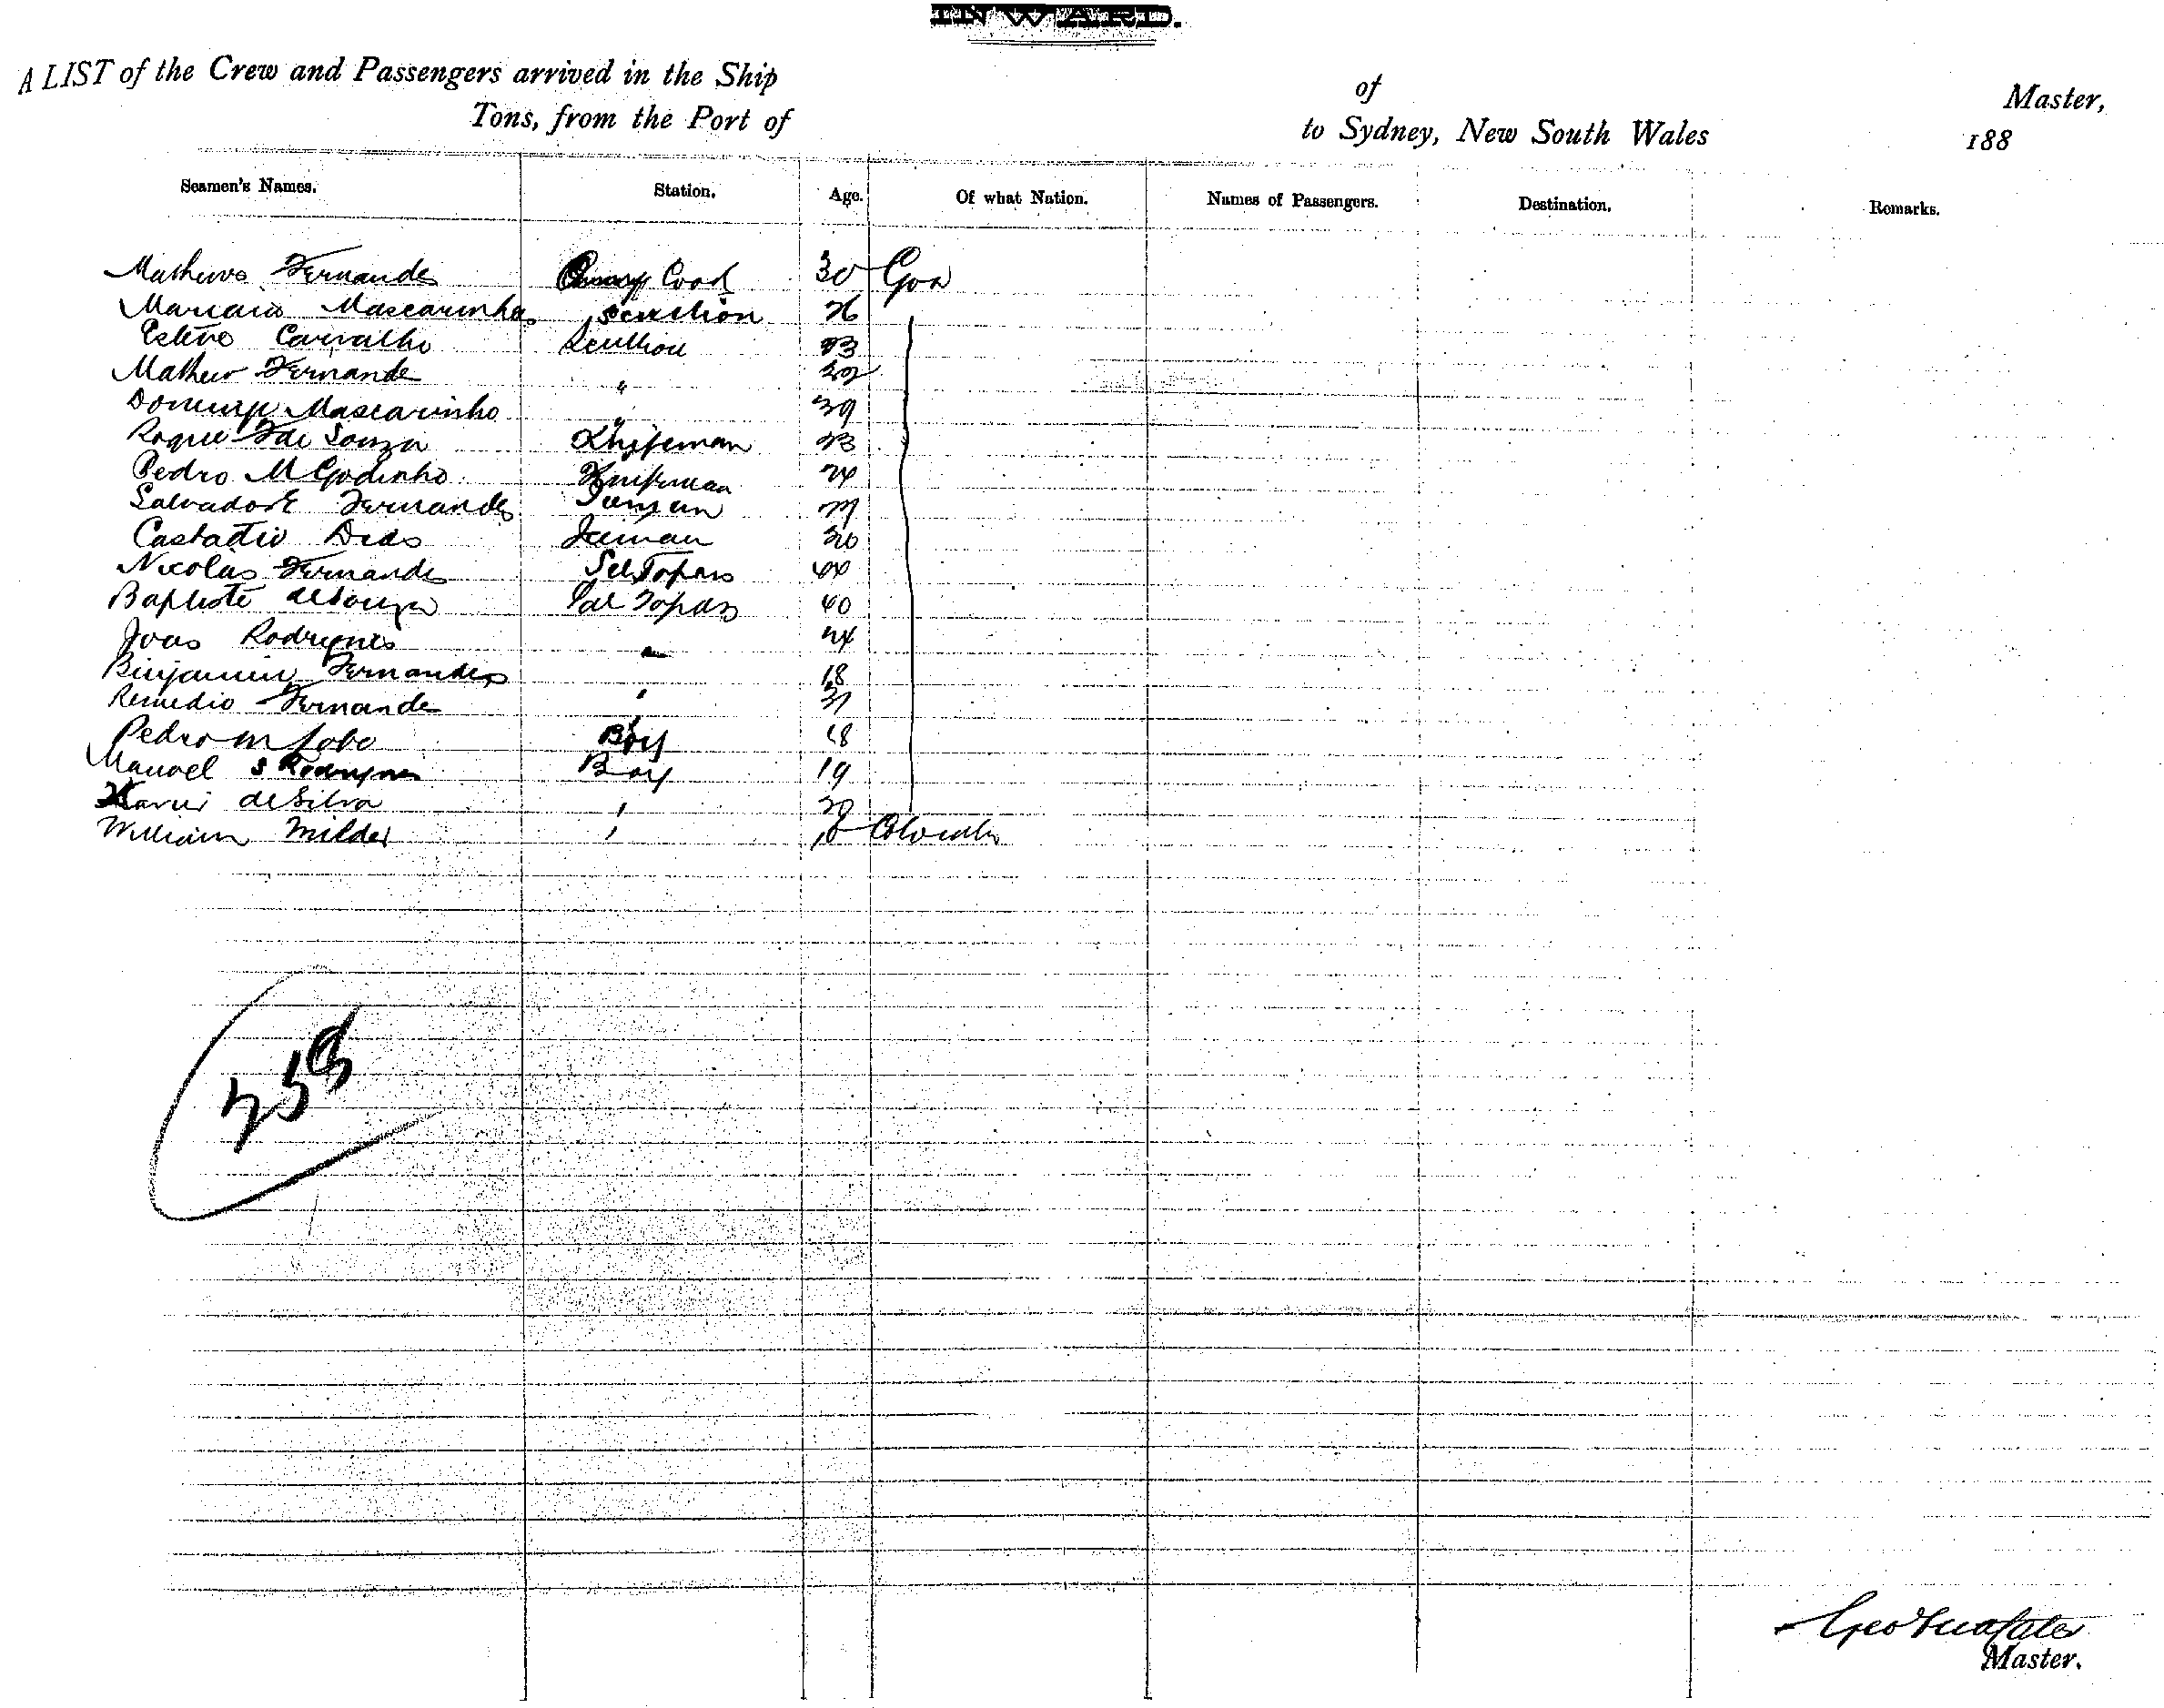 INWARD.
A LIST of the Crew and Passengers arrived in the Ship of Master,
Tons, from the Port of to Sydney, New South Wales 188
Seamen's Names. Station. Age. Of what Nation. Names of Passengers. Destination. Remarks.
Fernandes Cook 30 Goa
Mascarinhas Scullion 26
Carvalho Scullion 23
Mathew Fernande "
Mascarinho " 39
Roque F de Souza Knifeman 23
Pedro M Godinho Knifeman 24
Salvador E Fernandes
Dias
Nicolas Fernandes Topass 44
Baptiste de Souza Topass 40
Joas Rodrigues 24
Benjamin Fernandes 18
Remedio Fernande ' 31
Pedro M Lobo Boy 18
Manoel S Rodrigues Boy 19
Xavier de Silva '
William Milder '
Master.